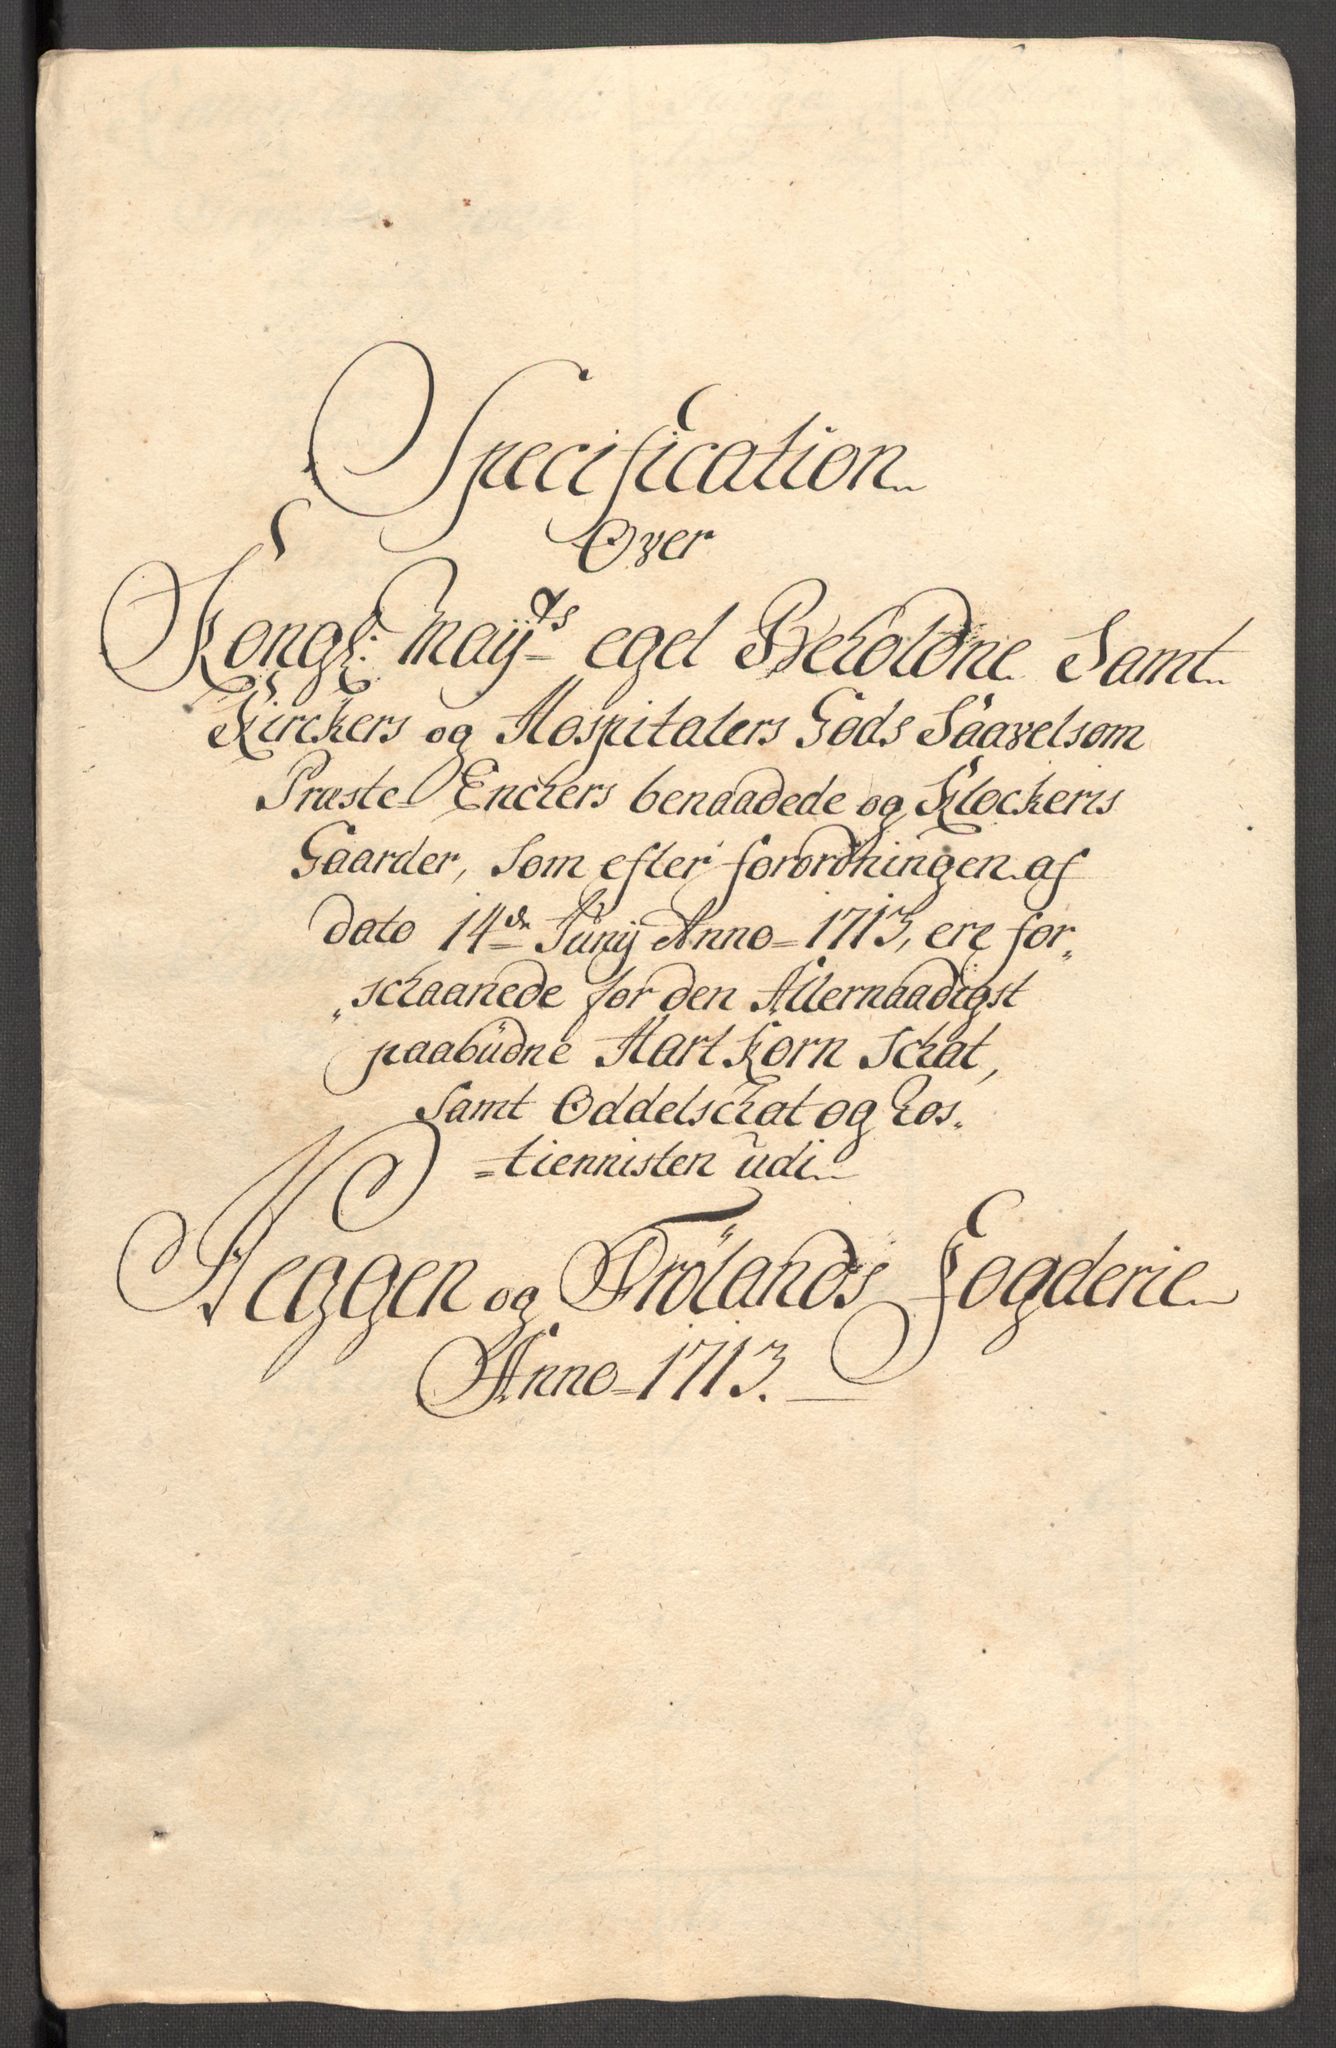 Specification
Over
Kongl: Maÿts eget Beholdne Samt
Kirckers og Hospitalers Gods Saavelsom
Præste Enckers benaadede og Klockeris
Gaarder, som efter forordningen af
dato 14de Junÿ Anno 1713, ere for„
„schaanede for den Allernaadigst
paabüdne Hart Korn Schat,
Samt Oddelschat og Ros=
=tiennisten udi
Heggen og Frölands Fogderie
Anno 1713.